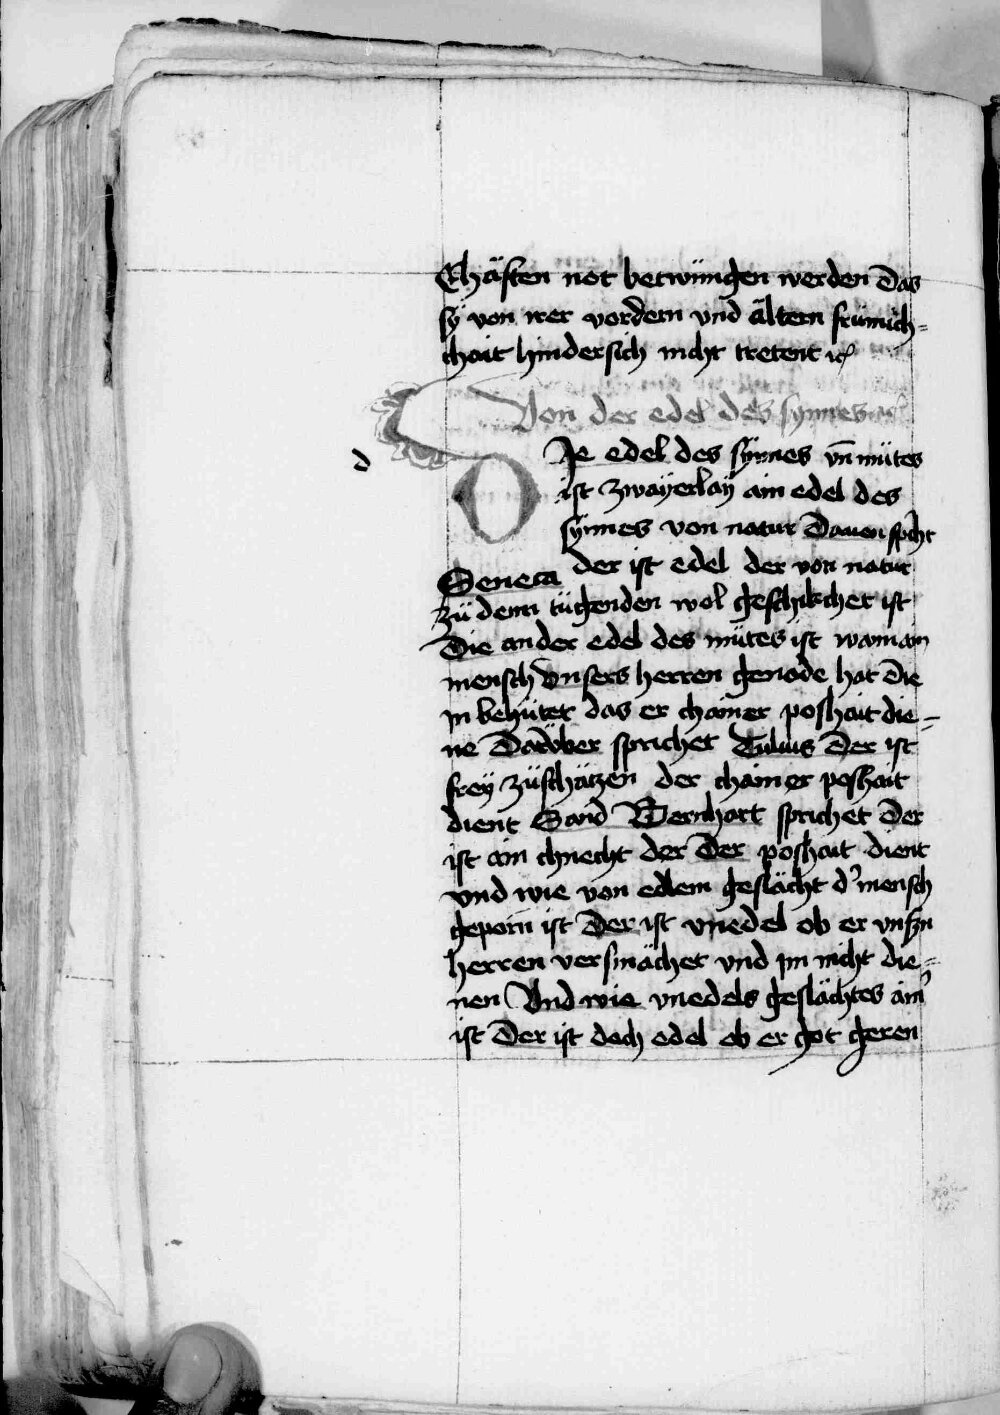 Ehäften not betwüngen werden das
sÿ von irer vordern vnd ältern frümich=
chait hindersich nicht tretent ꝛc
Von der edel des synnes ꝛc
d
DJe edel des sÿnnes vn̄ mütes
ist zwaÿerlaÿ ain edel des
sÿnnes von natur Dauon spͥcht
Seneca der ist edel der von natur
zü denn tügenden wol geschikchet ist
Die ander edel des mütes ist wann ain
mensch vnsers herren genade hat die
in behütet das er chainer poshait die=
ne Darüber sprichet Tulius Der ist
freÿ züschätzen der chainer poshait
dient Sand Bernhart sprichet Der
ist ain chnecht der Der poshait dient
vnd wie von edlem geslächt dʼ mensch
geporn ist Der ist vnedel ob er vnsʒn
herren versmächet vnd im nicht die=
nen Vnd wie vnedels geslächtes ainʼ
ist Der ist doch edel ob er got geren